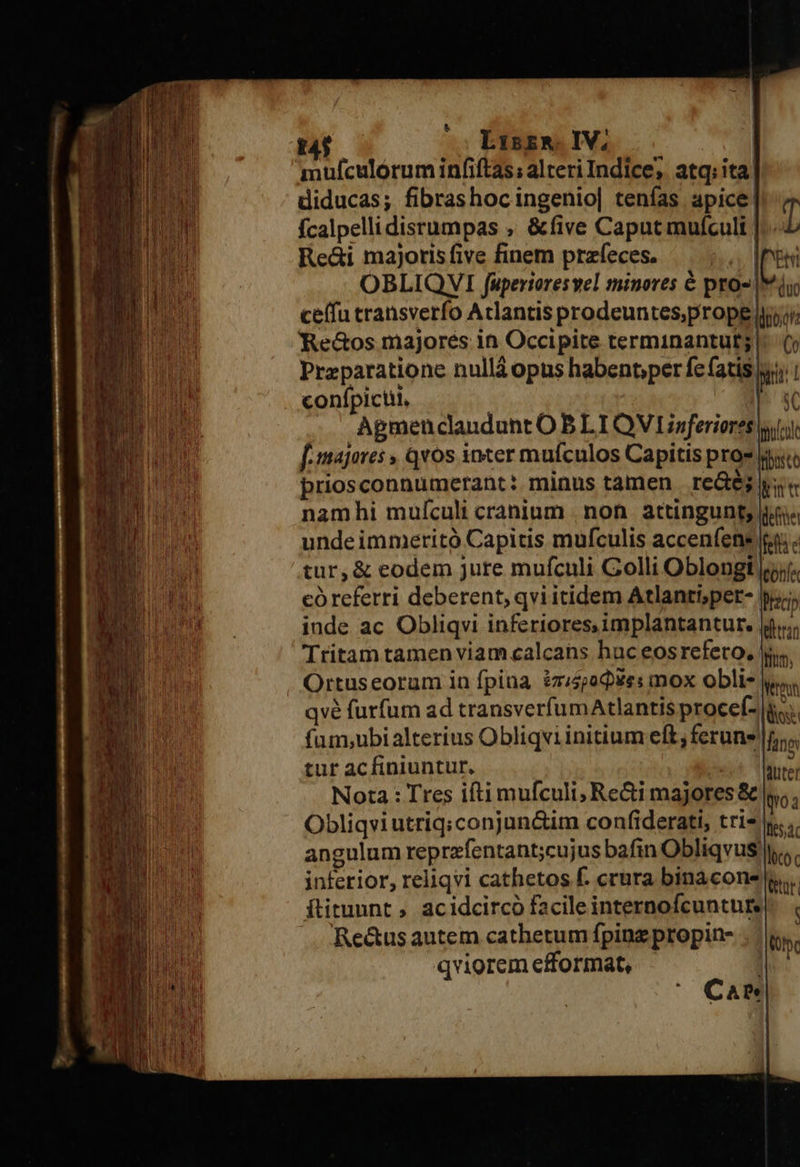 LIBER IV.
muſculorum inſiſtas; alteri Indice, atq; ita
diducas; fibras hoc ingenio tenſas apice
ſcalpelli disrumpas, & ſive Caput muſculi
Recti majoris ſive finem præſeces.
OBLIQVI ſuperiores vel minores è pro-
ceſſu transverſo Atlantis prodeuntes, prope
Rectos majores in Occipite terminantur;
Præparatione nullâ opus habent, per ſe ſatis
conſpicui.
Agmen claudunt OBLIQVI inferiores
ſ. majores, qvos inter muſculos Capitis pro-
prios connumerant: minus tamen rectè;
nam hi muſculi cranium non attingunt,
unde immeritò Capitis muſculis accenſen-
tur, & eodem jure muſculi Colli Oblongi
eò referri deberent, qvi itidem Atlanti, per-
inde ac Obliqvi inferiores, implantantur.
Tritam tamen viam calcans huc eos refero.
Ortus eorum in ſpina ἐπιϛροφέως mox obli-
qvè ſurſum ad transverſum Atlantis proceſ-
ſum, ubi alterius Obliqvi initium eſt, ferun-
tur ac finiuntur.
Nota: Tres iſti muſculi, Recti majores &
Obliqvi utriq; conjunctim conſiderati, tri-
angulum repræſentant; cujus baſin Obliqvus
inferior, reliqvi cathetos ſ. crura bina con-
ſtituunt, ac idcircò facile internoſcuntur.
Rectus autem cathetum ſpinæ propin-
qviorem efformat.
CAP.